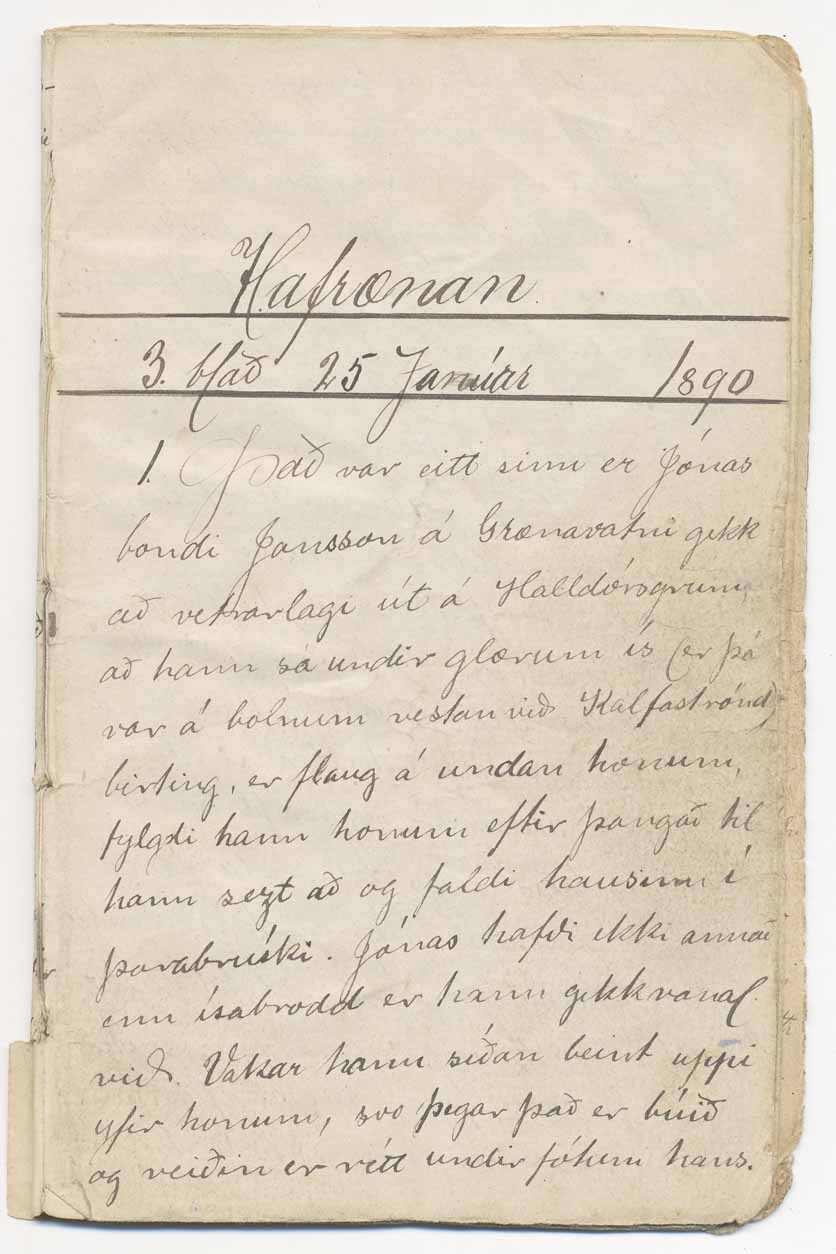 Hafrænan.
3. blað 25 Janúar 1890
1. Það var eitt sinn er Jónas
bondi Jonsson á Grænavatni gekk
að vetrarlagi út á Halldórsgrunn,
að hann sá undir glærum ís (er þá
var á bolnum vestan við Kalfaströnd)
birting, er flaug á undan honum,
fylgdi hann honum eftir þangað til
hann sezt að og faldi hausinn í
þarabrúski. Jónas hafði ekki annað
enn ísabrodd er hann gekk vanal.
við. Vakar hann síðan beint uppi
yfir honum, svo þegar það er búið
og veiðin er rétt undir fótum hans.